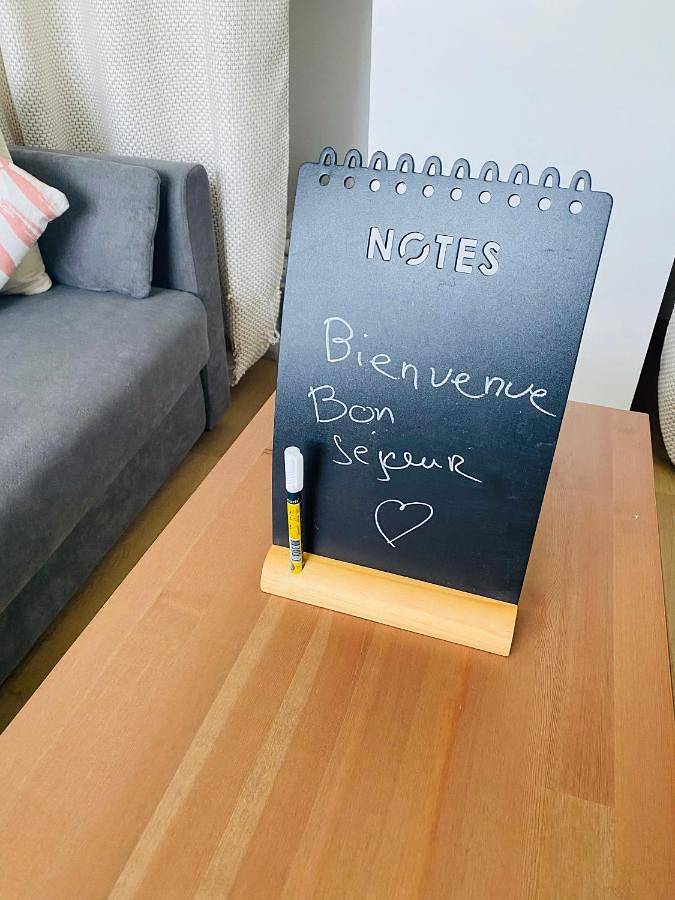 NOTES
Bienvenue
Bon
séjour